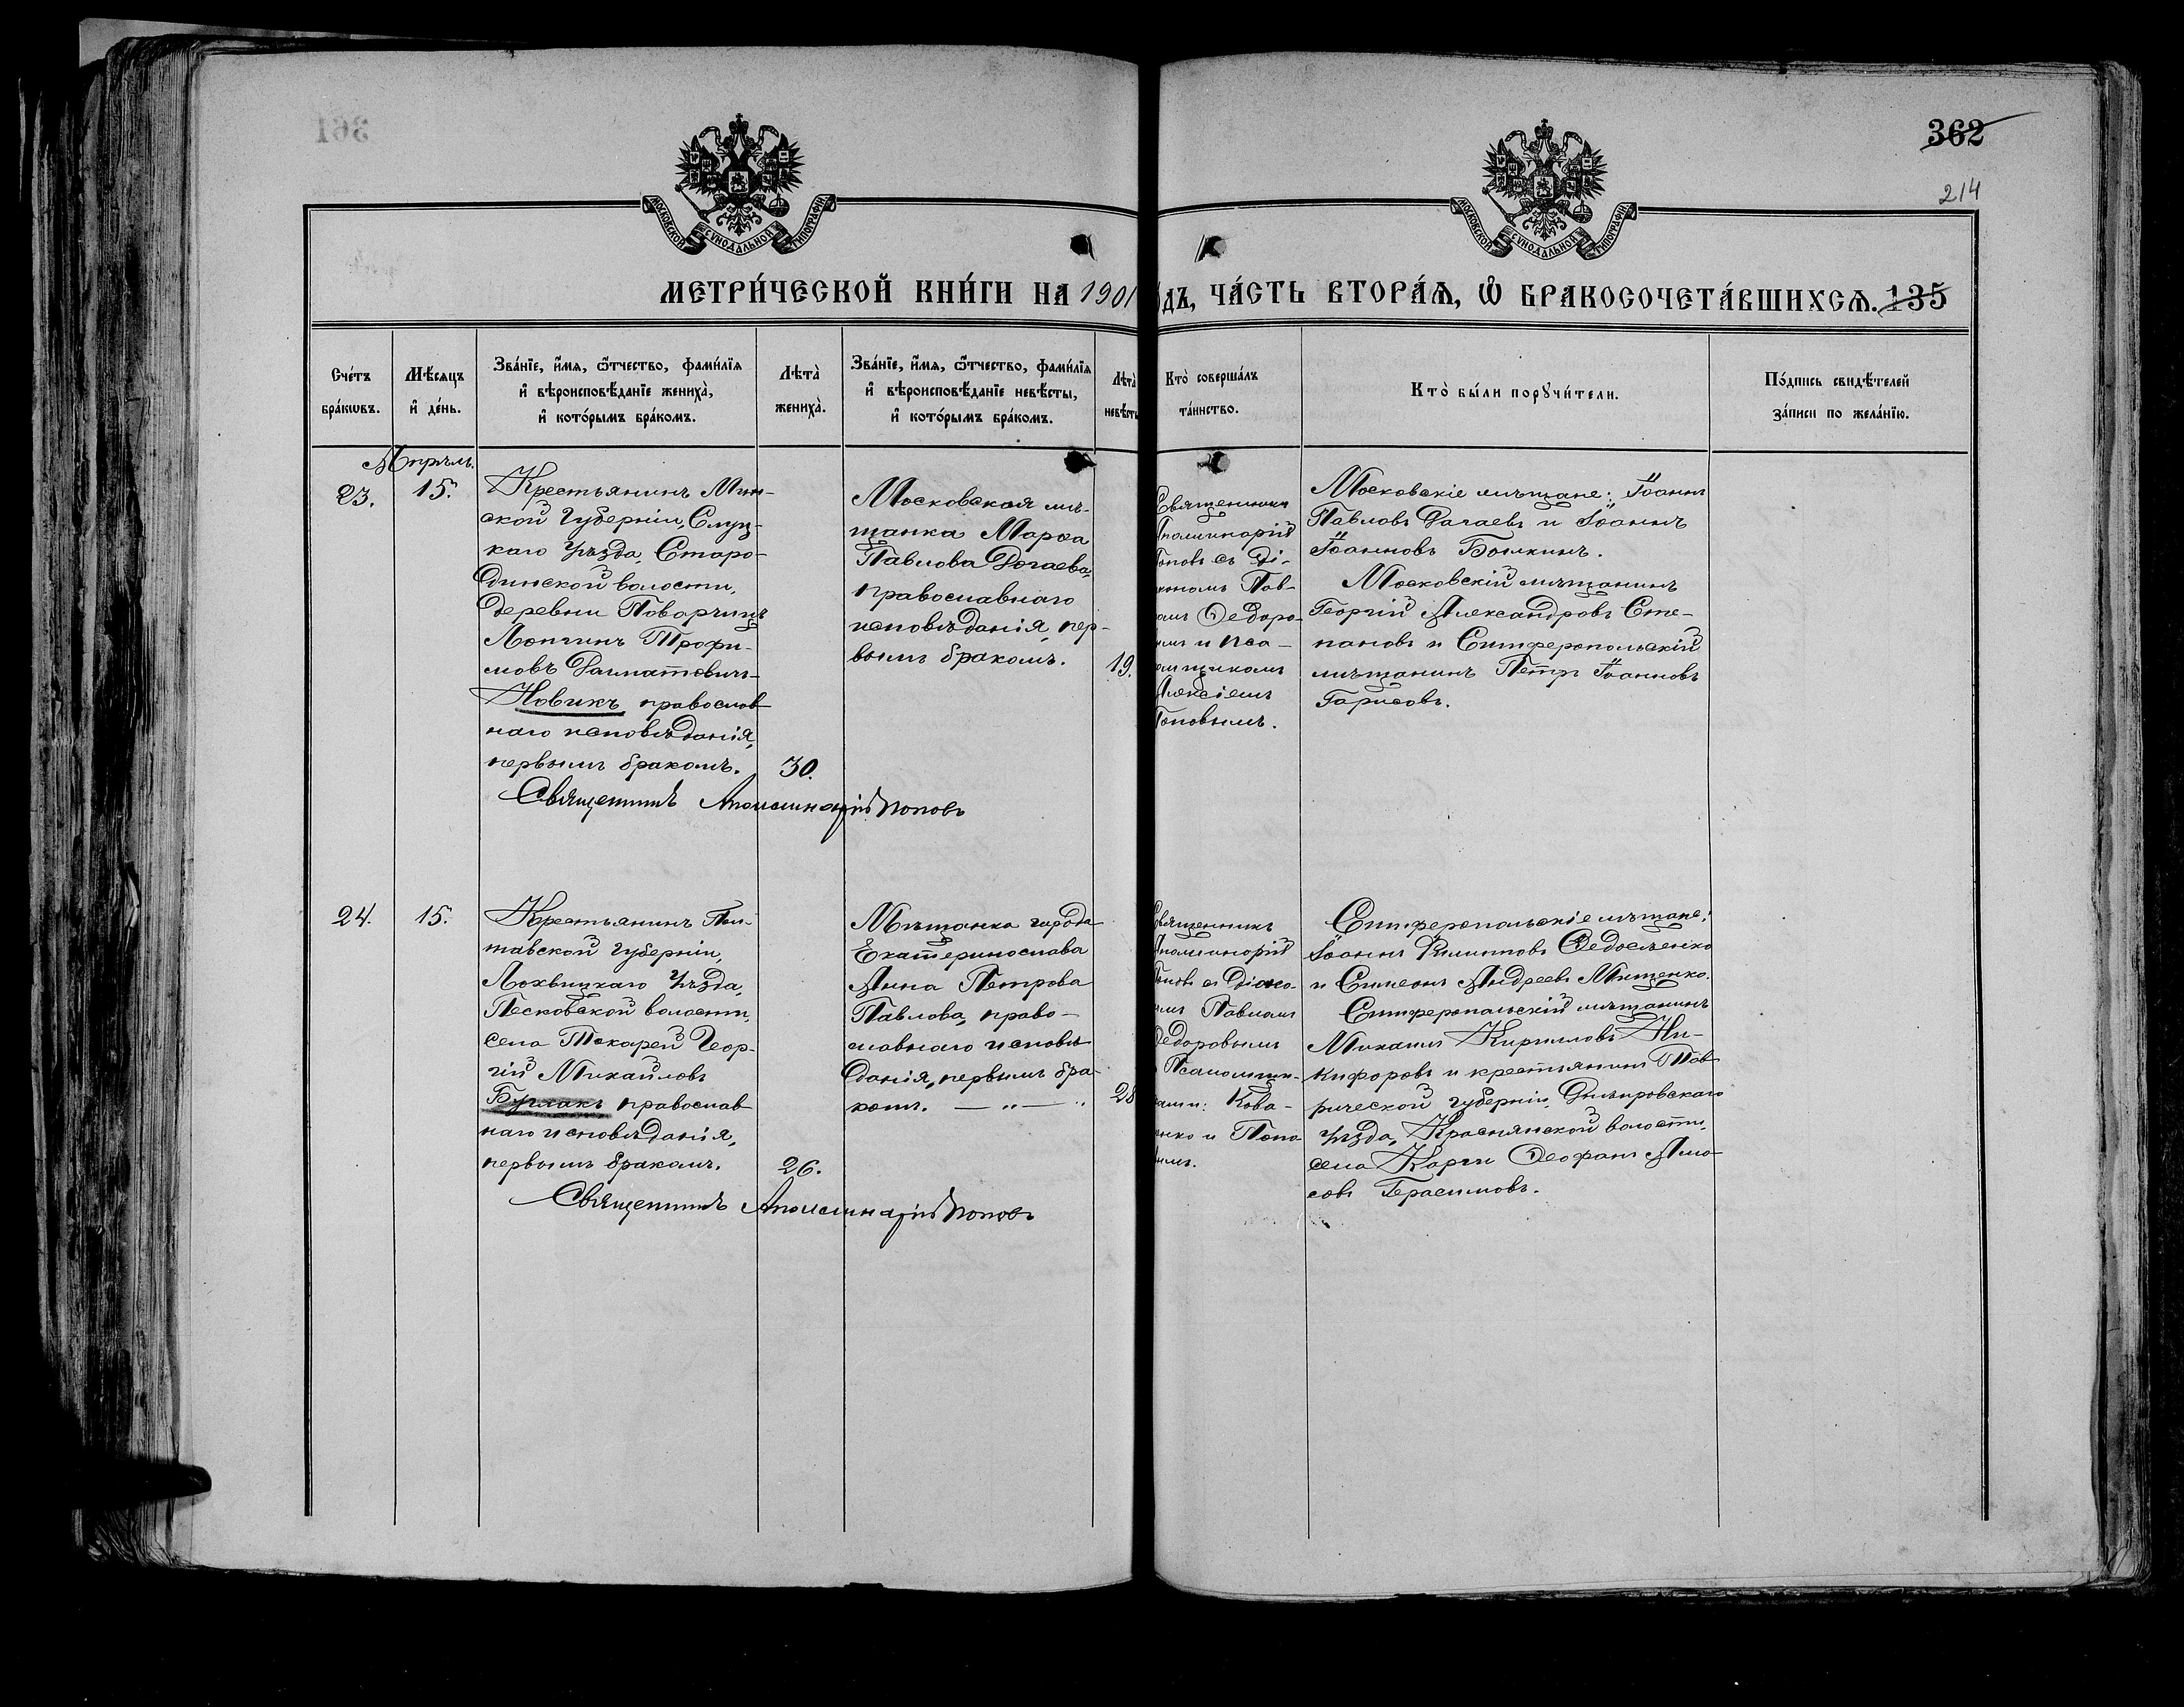 362
214
МОСКОВСКОЙ СѴНОДАЛЬНОЙ ТИПОГРАФІИ
МОСКОВСКОЙ СѴНОДАЛЬНОЙ ТИПОГРАФІИ
МЕТРИ́ЧЕСКОЙ КНИ́ГИ НА 1901 ДЪ, ЧА́СТЬ ВТОРА́Ѧ, Ѡ҆ БРАКОСОЧЕТА́ВШИХСѦ. 135
Сче́тъ
бра́кѡвъ.
Мѣ́сѧцъ
и҆ де́нь.
Зва́нїе, и҆́мѧ, ѻ҆́тчество, фами́лїѧ
и҆ вѣроисповѣ́данїе женихà,
и҆ кото́рымъ бра́комъ.
Лѣтà
женихà.
Зва́нїе, и҆́мѧ, ѻ҆́тчество, фами́лїѧ
и҆ вѣроисповѣ́данїе невѣ́сты,
и҆ кото́рымъ бра́комъ.
Лѣтà
невѣ́сты
Ктò соверша́лъ
та́инство.
Ктò бы́ли порꙋчи́тели.
По́дпись свидѣ́телей
за́писи по жела́нїю.
Апрѣль.
23.
15.
Крестьянинъ Мин-
ской Губерніи, Слуц-
каго Уѣзда, Старо-
динской волости,
деревни Поварчицъ
Лонгинъ Трофи-
мовъ Далматовичъ-
Новикъ православ
наго исповѣданія,
первымъ бракомъ.
30.
Московская мѣ-
щанка Марѳа
Павлова Догаева,
православнаго
исповѣданія, пер-
вымъ бракомъ.
19.
Священникъ
Аполлинарій
Поповъ съ Ді-
кономъ Пав-
ломъ Ѳедоро-
ымъ и Пса-
омщикомъ
Алексіемъ
Поповымъ.
Московскіе мѣщане: Іоаннъ
Павловъ Дагаевъ и Іоаннъ
Іоанновъ Бомкинъ.
Московскій мѣщанинъ
Георгій Александровъ Сте-
пановъ и Симферопольскій
мѣщанинъ Петръ Іоанновъ
Гарисовъ.
Священникъ Аполлинарій Поповъ
24.
15.
Крестьянинъ Пол-
тавской губерніи,
Лохвицкаго Уѣзда,
Песковской волости,
села Токарей Геор-
гій Михайловъ
Бурлакъ православ
наго исповѣданія,
первымъ бракомъ.
26.
Мѣщанка города
Екатеринослава
Анна Петрова
Павлова, право-
славнаго исповѣ
данія, первымъ бра-
комъ. — „ — „
28
Священникъ
Аполлинарій
Поповъ съ Діако-
омъ Павломъ
Ѳедоровымъ
Псаломщи-
ками: Кова-
енко и Попо
вымъ.
Симферопольскіе мѣщане:
Іоаннъ Филипповъ Ѳедосѣенко
и Симеонъ Андреевъ Мищенко.
Симферопольскій мѣщанинъ
Михаилъ Кирилловъ Ни-
кифоровъ и крестьянинъ Тав-
рической губерніи, Днѣпровскаго
уѣзда, Краснянской волости,
села Карги Ѳеофанъ Амо-
совъ Герасимовъ.
Священникъ Аполлинарій Поповъ